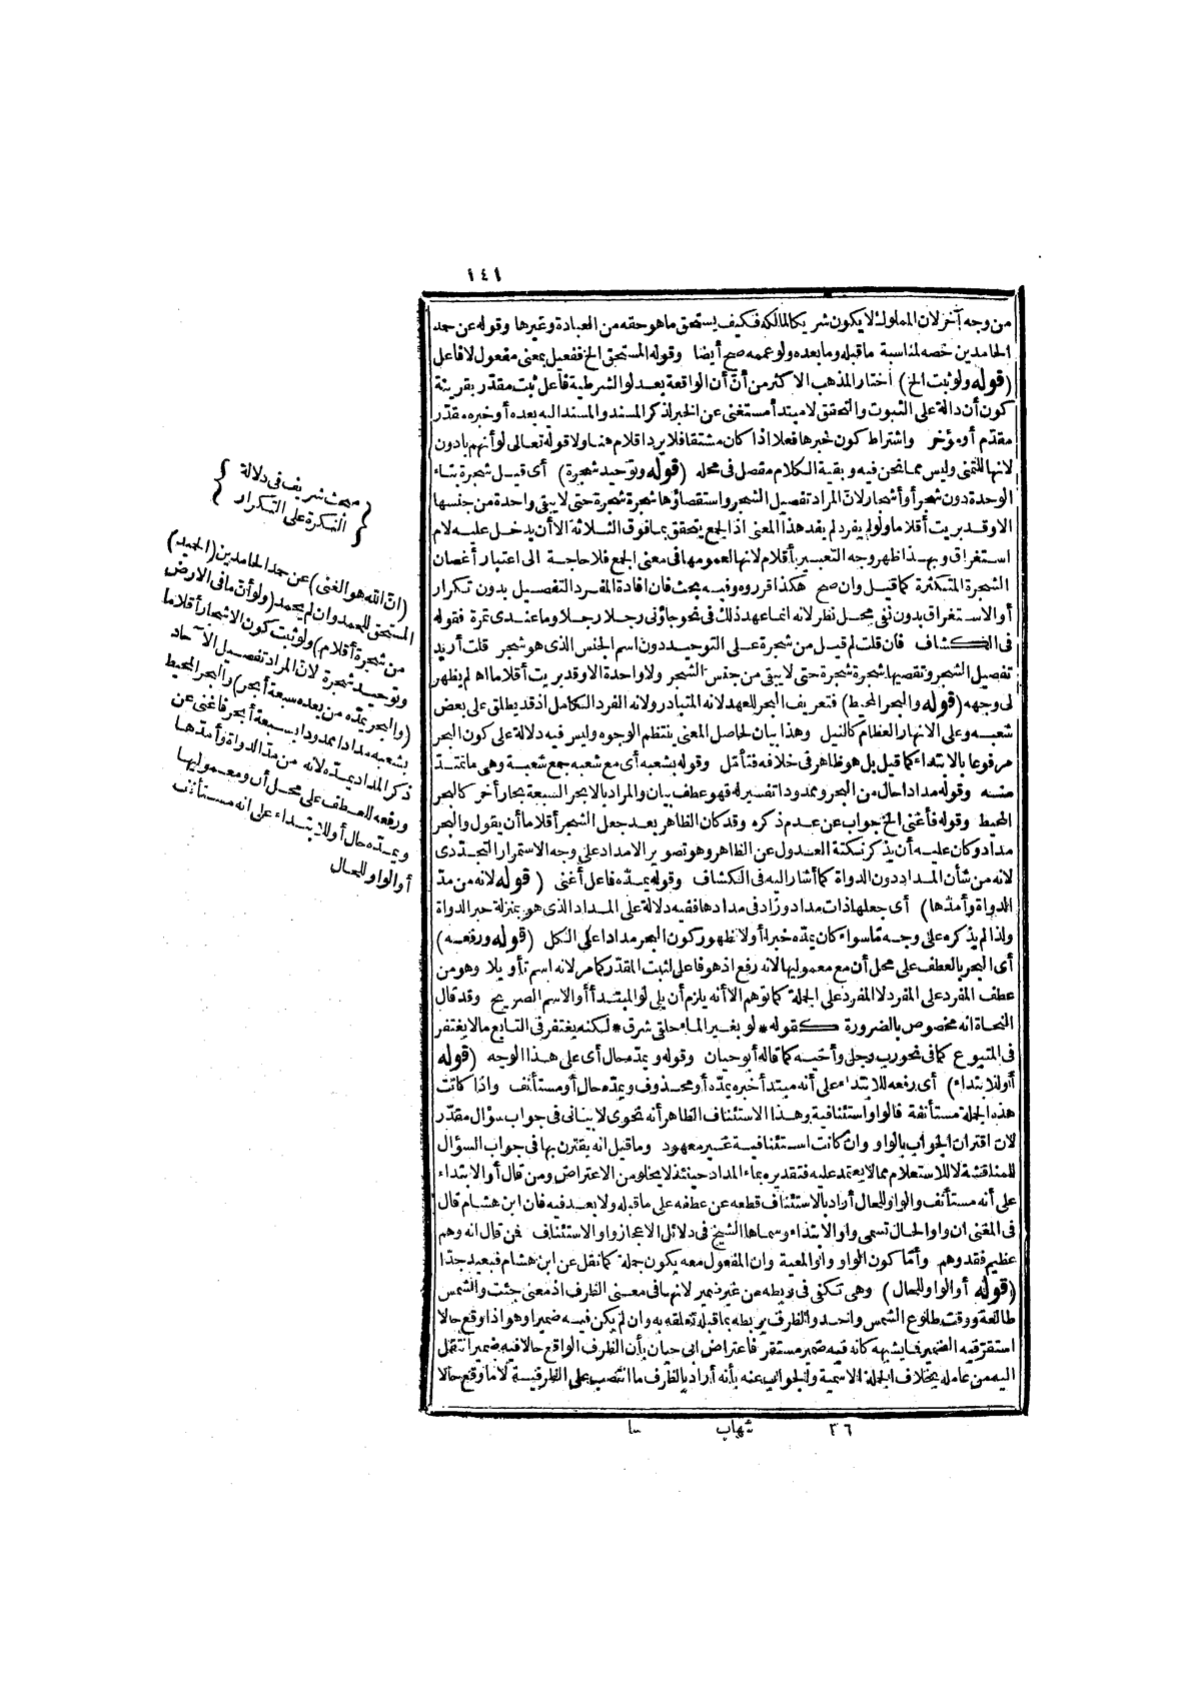 ١٤١
من وجه آخر لان المملوك لا يكون شريكا لمالكه فكيف يستحق ما هو حقه من العبادة وغيرها وقوله عن حمد
الحامدين خصه لمناسبة ما قبله وما بعده ولو عممه صح أيضا وقوله المستحق الخ ففعيل بمعنى مفعول لا فاعل
(قوله ولو ثبت الخ) اختار المذهب الاكثر من أنّ أن الواقعة بعد لو الشرطية فاعل ثبت مقدّر بقرينة
كون أن دالة على الثبوت والتحقق لا مبتدأ مستغنى عن الخبر لذكر المسند والمسند اليه بعده أو خبره مقدّر
مقدّم أو مؤخر واشتراط كون خبرها فعلا اذا كان مشتقا فلا يرد اقلام هنا ولا قوله تعالى لو أنهم بادون
لانها للتمنى وليس مما نحن فيه وبقية الكلام مفصل فى محله (قوله وتوحيد شجرة) أى قيل شجرة بتاء
الوحدة دون شجر أو أشجار لانّ المراد تفصيل الشجر واستقصاؤها شجرة شجرة حتى لا يبقى واحدة من جنسها
الا وقد بريت أقلاما ولو لم يفرد لم يفد هذا المعنى اذ الجمع يتحقق بما فوق الثلاثة الا أن يدخل عليه لام
استغراق وبهذا ظهر وجه التعبير بأقلام لانها لعمومها فى معنى الجمع فلا حاجة الى اعتبار أغصان
الشجرة المتكثرة كما قيل وان صح هكذا قرروه وفيه بحث فان افادة المفرد التفصيل بدون تكرار
أو الاستغراق بدون نفى محل نظر لانه انما عهد ذلك فى نحو جاؤنى رجلا رجلا وما عندى تمرة فقوله
فى الكشاف فان قلت لم قيل من شجرة على التوحيد دون اسم الجنس الذى هو شجر قلت أريد
تفصيل الشجر وتقصيها شجرة شجرة حتى لا يبقى من جنس الشجر ولا واحدة الا وقد بريت أقلاما اه لم يظهر
لى وجهه (قوله والبحر المحيط) فتعريف البحر للعهد لانه المتبادر ولانه الفرد الكامل اذ قد يطلق على بعض
شعبه وعلى الانهار العظام كالنيل وهذا بيان لحاصل المعنى ينتظم الوجوه وليس فيه دلالة على كون البحر
مرفوعا بالابتداء كما قيل بل هو ظاهر فى خلافه فتأتل وقوله بشعبه أى مع شعبه جمع شعبة وهى ما تمتد
منه وقوله مدادا حال من البحر وممدودا تفسير له فهو عطف بيان والمراد بالابحر السبعة بحار أخر كالبحر
المحيط وقوله فأغنى الخ جواب عن عدم ذكره وقد كان الظاهر بعد جعل الشجر أقلاما أن يقول والبحر
مداد وكان عليه أن يذكر نكتة العدول عن الظاهر وهو تصوير الامداد على وجه الاستمرار التجدّدى
لانه من شأن المداد دون الدواة كما أشار اليه فى الكشاف وقوله يمدّه فاعل أغنى (قوله لانه من مدّ
الدواة وأمدّها) أى جعلها ذات مداد وزاد فى مدادها ففيه دلالة على المداد الذى هو بمنزلة حبر الدواة
ولذا لم يذكره على وجه ما سواء كان يمدّه خبرا أو لا لظهور كون البحر مدادا على الكل (قوله ورفعه)
أى البحر بالعطف على محل أن مع معموليها لانه رفع اذ هو فاعل لثبت المقدّر كما مر لانه اسم تأويلا وهو من
عطف المفرد على المفرد لا المفرد على الجملة كما توهم الا أنه يلزم أن يلى لو المبتدأ أو الاسم الصريح وقد قال
النحاة انه مخصوص بالضرورة كقوله * لو بغير الماء حلقى شرق * لكنه يغتفر فى التابع ما لا يغتفر
فى المتبوع كما فى نحو رب رجل وأخيه كما قاله أبو حيان وقوله ويمدّه حال أى على هذا الوجه (قوله
أو للابتداء) أى رفعه للابتداء على أنه مبتدأ خبره يمدّه أو محذوف ويمدّه حال أو مستأنف واذا كانت
هذه الجملة مستأنفة فالواو استئنافية وهذا الاستئناف الظاهر أنه نحوى لا بيانى فى جواب سؤال مقدّر
لان اقتران الجواب بالواو وان كانت استئنافية غير معهود وما قيل انه يقترن بها فى جواب السؤال
للمناقشة لا للاستعلام مما لا يعتمد عليه فتقديره بماء المداد حينئذ لا يخلو من الاعتراض ومن قال أو الابتداء
على أنه مستأنف والواو للحال أراد بالاستئناف قطعه عن عطفه على ما قبله ولا بعد فيه فان ابن هشام قال
فى المغنى ان واو الحال تسمى واو الابتداء وسماها الشيخ فى دلائل الاعجاز واو الاستئناف فمن قال انه وهم
عظيم فقد وهم وأمّا كون الواو واو المعية وان المفعول معه يكون جملة كما نقل عن ابن هشام فبعيد جدّا
(قوله أو الواو للحال) وهى تكفى فى ربطه من غير ضمير لانها فى معنى الظرف اذ معنى جئت والشمس
طالعة ووقت طلوع الشمس واحد والظرف يربطه بما قبله تعلقه به وان لم يكن فيه ضمير وهو اذا وقع حالا
استقرّ فيه الضمير فما يشبهه كانه فيه ضمير مستقر فاعتراض ابى حيان بأن الظرف الواقع حالا فيه ضمير انتقل
اليه من عامله بخلاف الجملة الاسمية والجواب عنه بأنه أراد بالظرف ما انتصب على الظرفية لا ما وقع حالا
مبحث شريف فى دلالة
النكرة على التكرار
(انّ الله هو الغنىّ) عن حمد الحامدين (الحميد)
المستحق للحمد وان لم يحمد (ولو أنّ ما فى الارض
من شجرة أقلام) ولو ثبت كون الاشجار أقلاما
وتوحيد شجرة لانّ المراد تفصيل الآحاد
(والبحر يمدّه من بعده سبعة أبحر) والبحر المحيط
بشعبه مدادا ممدودا بسبعة أبحر فأغنى عن
ذكر المداد يمدّه لانه من مدّ الدواة وأمدّها
ورفعه للعطف على محل أن ومعموليها
ويمدّه حال أو للابتداء على انه مستأنف
أو الواو للحال
٣٦ شهاب سا